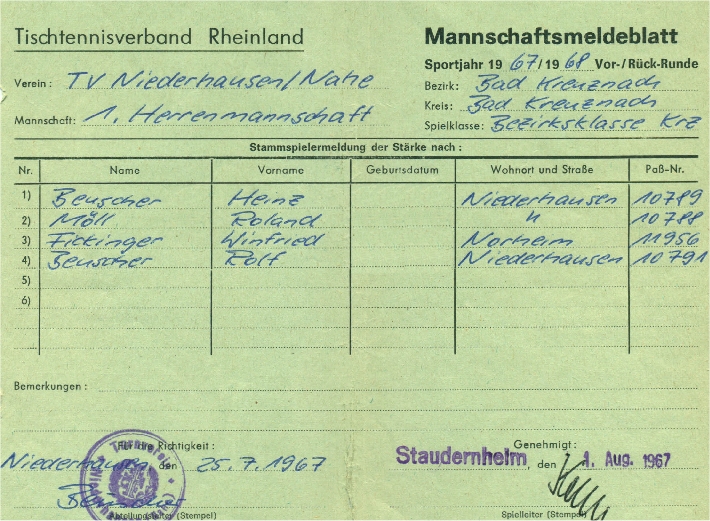 Tischtennisverband Rheinland
Mannschaftsmeldeblatt
Sportjahr 1967/1968 Vor-/Rück-Runde
Verein: TV Niederhausen/Nahe
Bezirk: Bad Kreuznach
Kreis: Bad Kreuznach
Mannschaft: 1. Herrenmannschaft
Spielklasse: Bezirksklasse Krz
Stammspielermeldung der Stärke nach:
Nr. Name Vorname Geburtsdatum Wohnort und Straße Paß-Nr.
1) Beuscher Heinz Niederhausen 10789
2) Möll Roland " 10788
3) Fickinger Winfried Norheim 11956
4) Beuscher Rolf Niederhausen 10791
5)
6)
Bemerkungen:
Für die Richtigkeit: Genehmigt:
Niederhausen, den 25.7.1967 Staudernheim, den 1. Aug. 1967
Beuscher
Abteilungsleiter (Stempel) Spielleiter (Stempel)